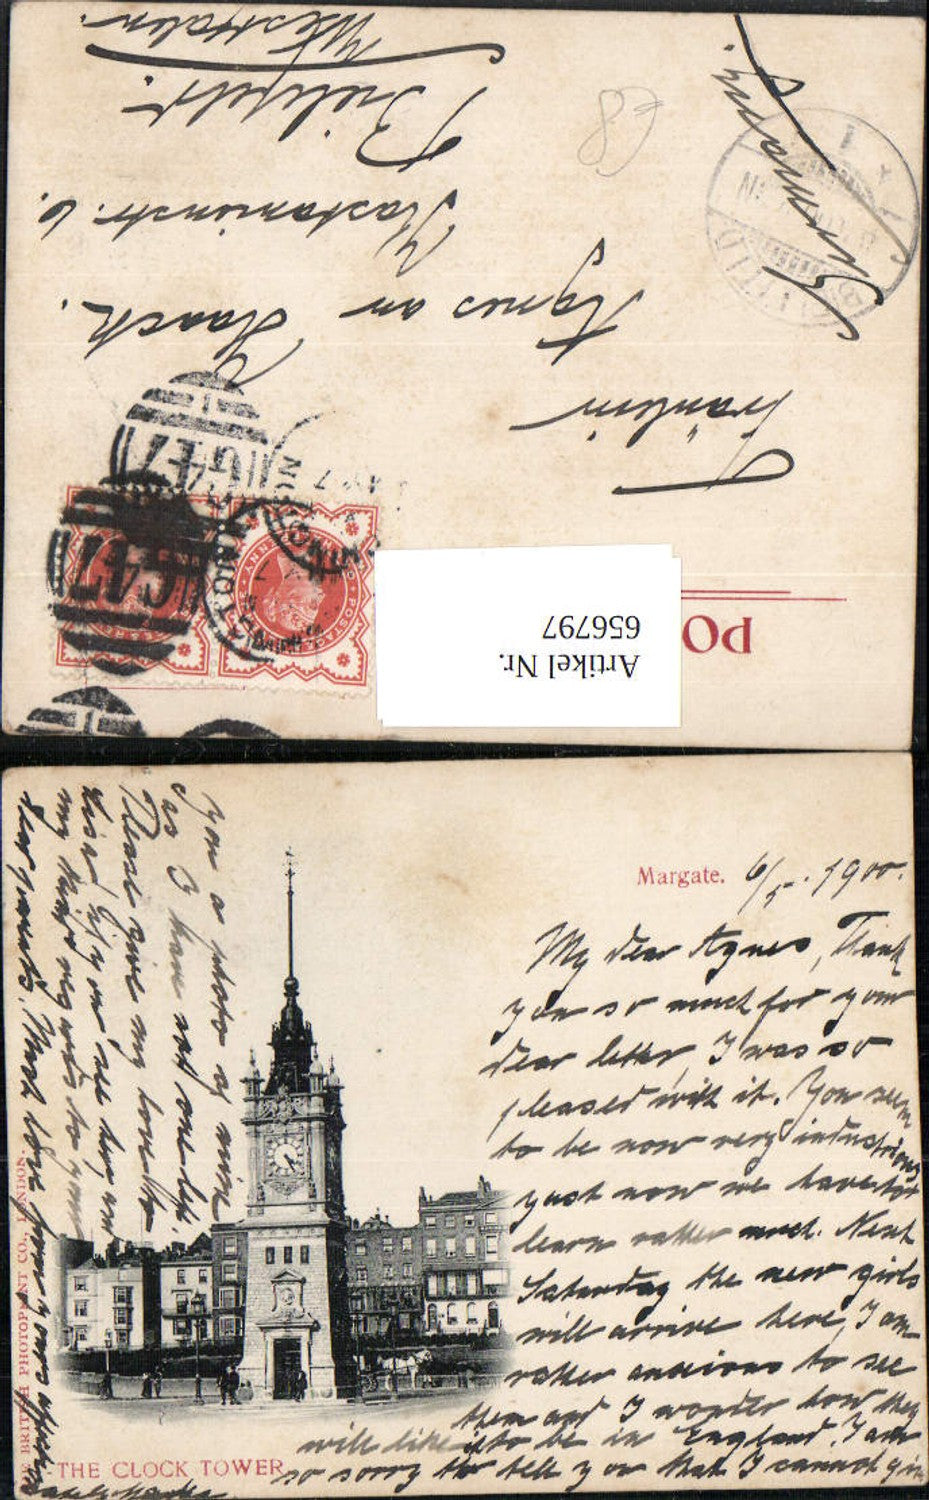 PO
Artikel Nr.
656797
Fräulein
Agnes av Haach.
Kastanienstr. 6.
Bielefeld.
Westfalen.
Germany.
G47
G47
Margate. 6/5. 1900.
My dear Agnes, Thank
you so much for your
dear letter, I was so
pleased with it. You seem
to be now very industrious
just now we have to
learn rather much. Next
Saturday the new girls
will arrive here, I am
rather anxious to see
them and I wonder how they
will like it to be in England. I am
so sorry to tell you that I cannot give
you a photo of mine
as I have not one left.
Please give my love to
my kind regards to your
dear parents. Much love from yours
THE CLOCK TOWER
BRITISH PHOTOPRINT CO., LONDON.